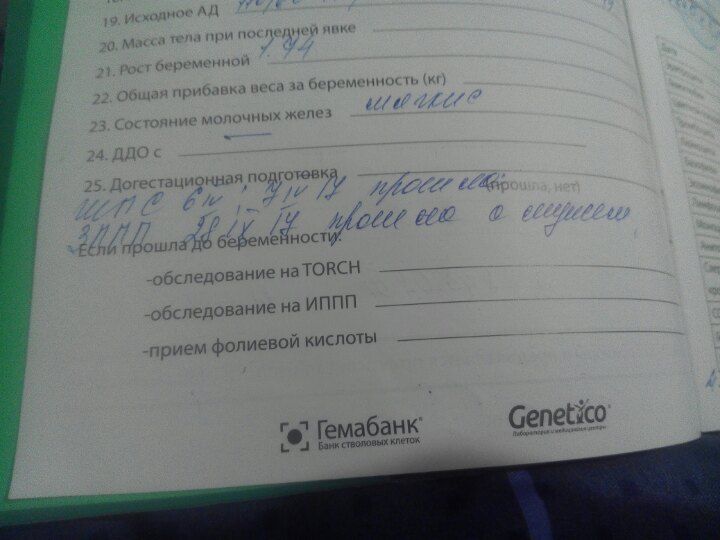 19. Исходное АД
20. Масса тела при последней явке
21. Рост беременной 1.74
22. Общая прибавка веса за беременность (кг)
23. Состояние молочных желез мягкие
24. ДДО с
25. Догестационная подготовка (прошла, нет)
ШПС 6 IV ; 7 IV 17 прошла
ЗППП 28 IX 17 прошла с мужем
Если прошла до беременности:
-обследование на TORCH
-обследование на ИППП
-прием фолиевой кислоты
Гемабанк®
Банк стволовых клеток
Genetico®
Лаборатории и медицинские центры